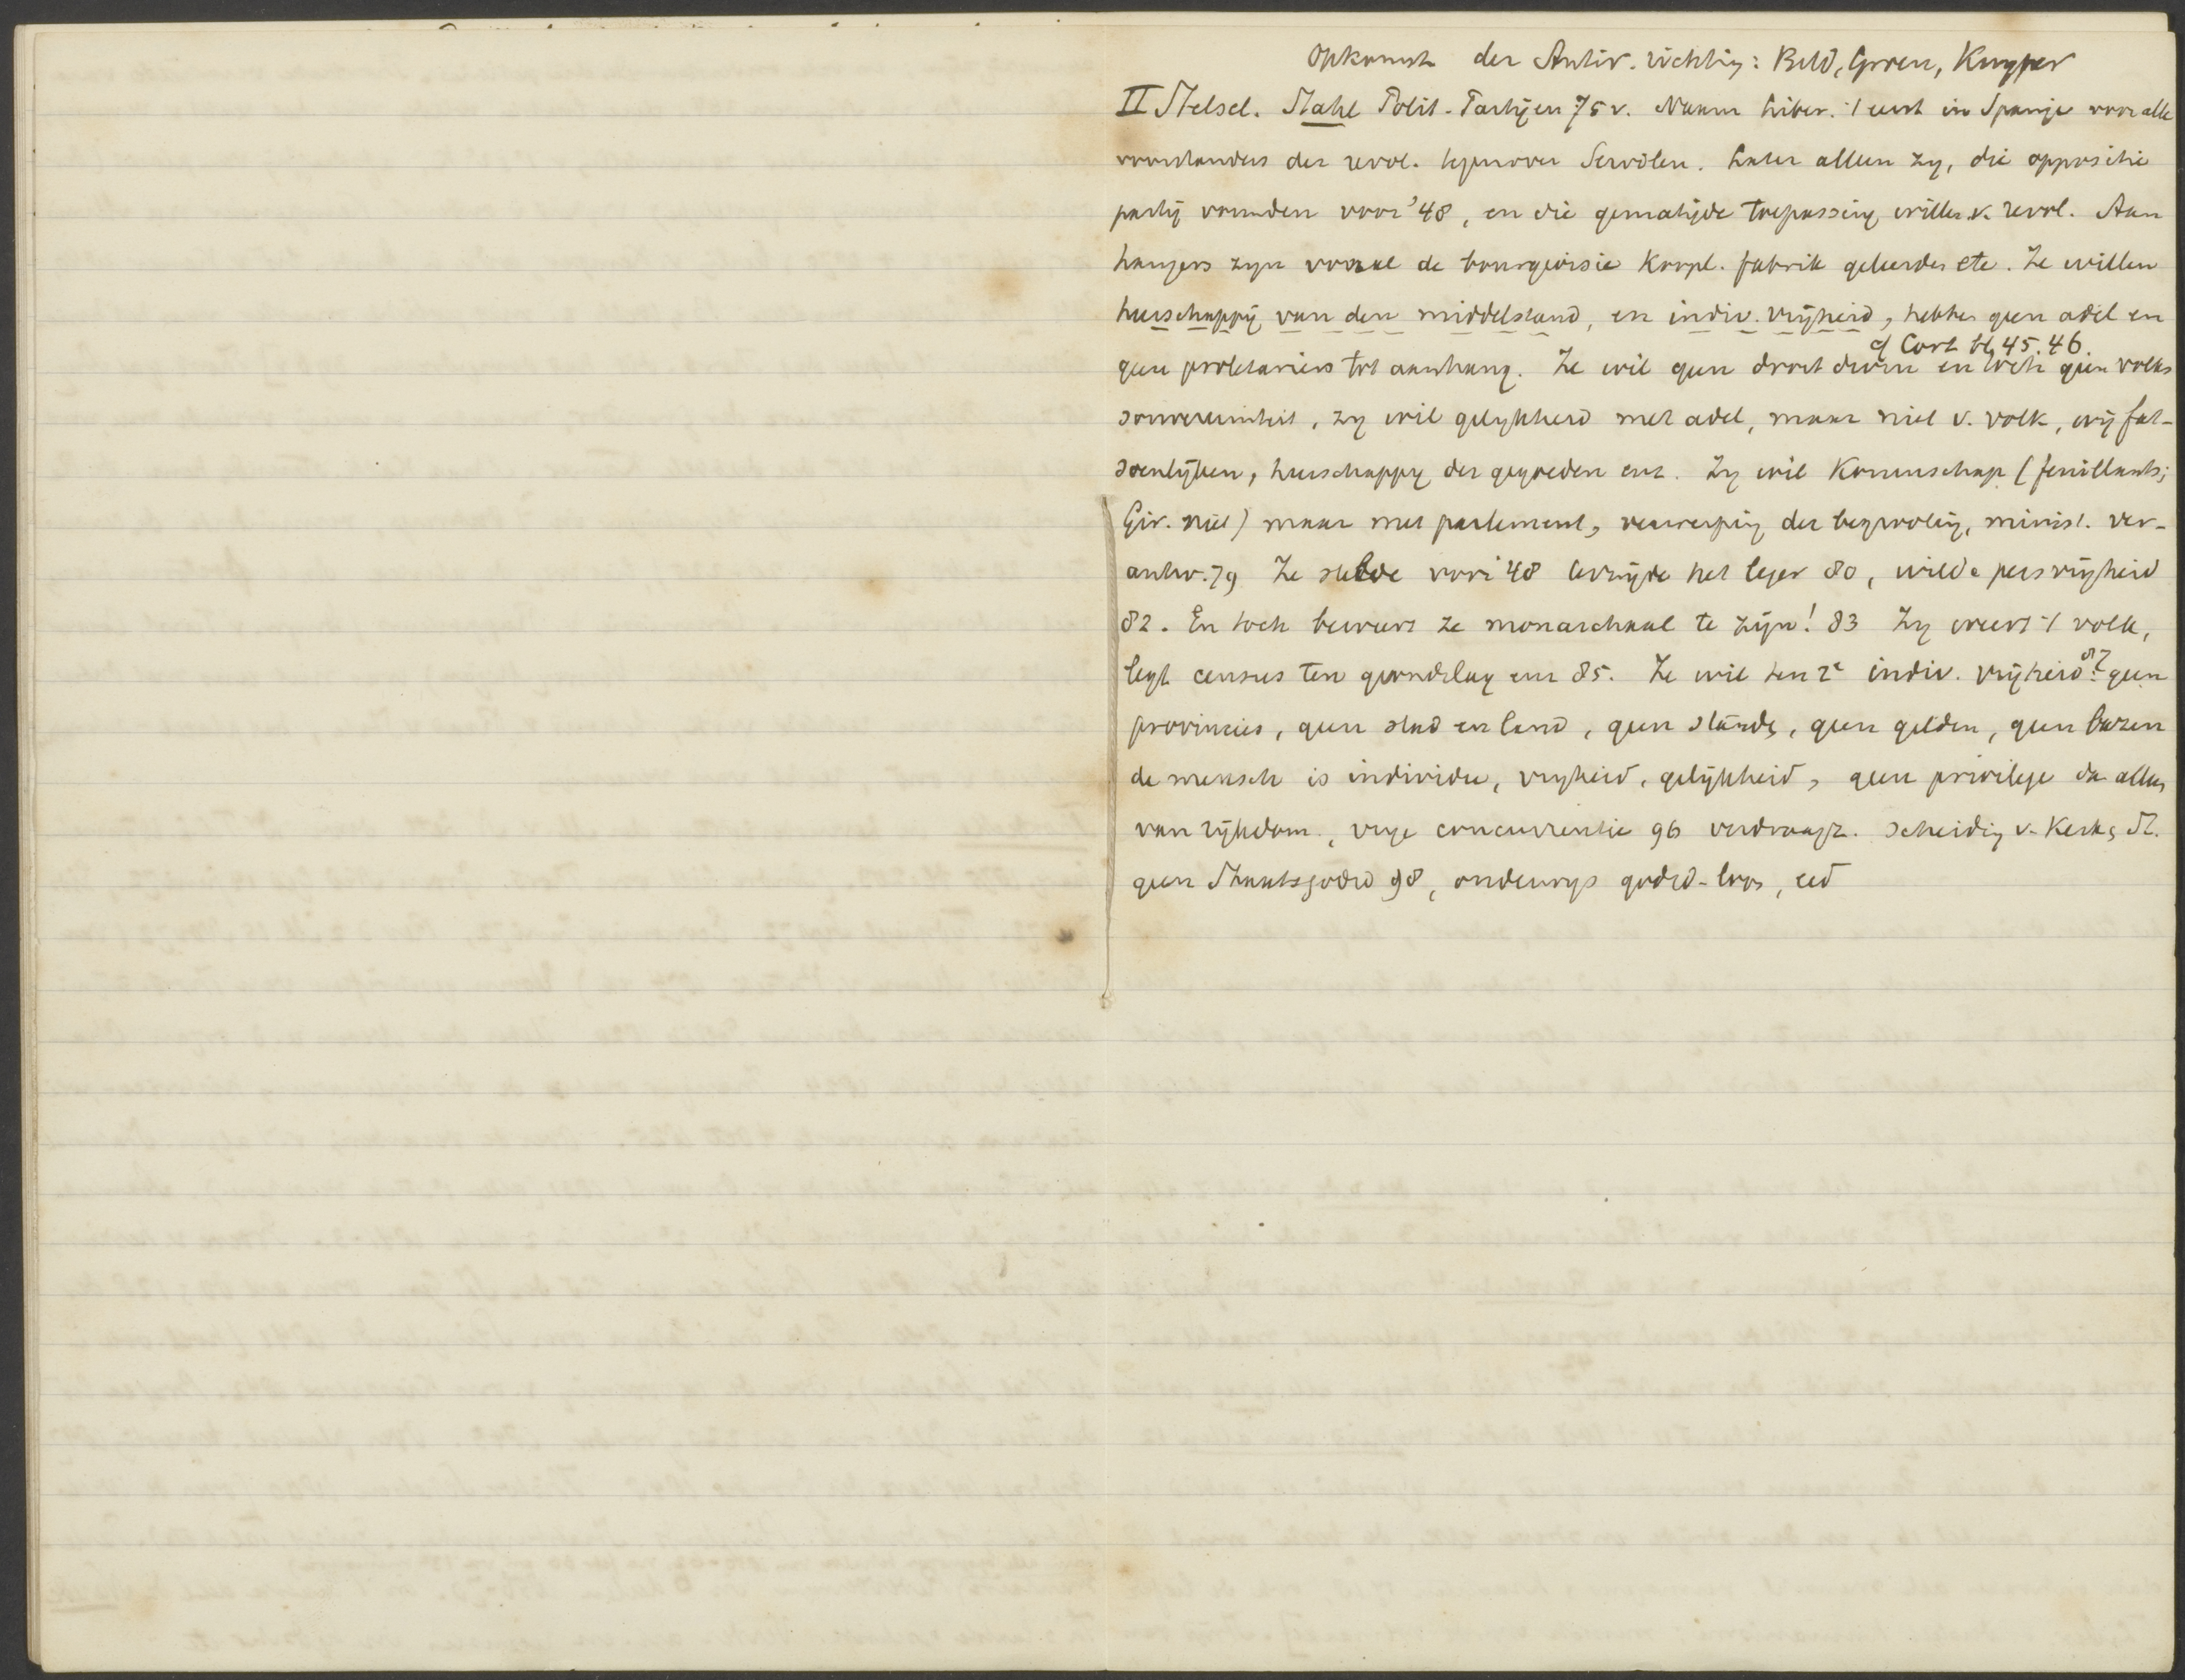 Opkomst der Antir. richting: Bild, Groen, Kuyper
II Stelsel. Stahl Polit. Partijen 75 v. Naam Liber. 't eerst in Spanje voor alle
voorstanders der revol. tegenover Servilen. Later alleen zy, die oppositie
partij vormden voor '48, en die gematigde toepassing willen v. revol. Aan
hangers zyn vooral de bourgeoisie Koopl. fabrik geleerden etc. Ze willen
heerschappij van den middelstand, en indiv. vrijheid, hebben geen adel en
cf Cort bl. 45. 46.
geen proletariers tot aanhang. Ze wil geen droit divin en toch geen volks
souvereiniteit, zy wil gelykheid met adel, maar niet v. volk, wij fat-
soenlijken, heerschappy der gegoeden enz. Zy wil Koningschap (feuillants;
Gir. niet) maar met parlement, verwerping der begrooting, minist. ver-
antw. 79 Ze stelde voor '48 bevrijde het leger 80, wilde persvrijheid
82. En toch beweert ze monarchaal te zijn! 83 Zy vreest 't volk,
legt census ten grondslag enz 85. Ze wil ten 2e indiv. vrijheid 87. geen
provincies, geen stad en land, geen stände, geen gilden, geen bazen
de mensch is individu, vryheid, gelijkheid, geen privilege dan alleen
van rijkdom, vrye concurrentie 96 verdraagz. scheiding v. Kerk & St.
geen Staatsgodsd 98, onderwys godsd-loos, eed